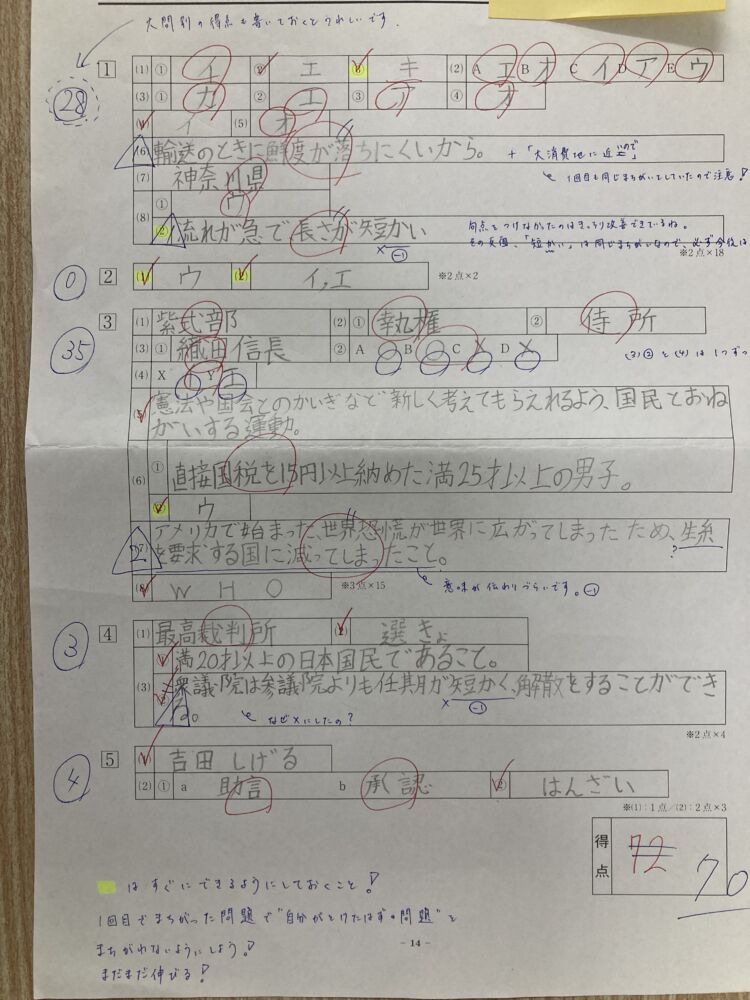 大問別の得点も書いておくとうれしいです.
28
1
(1) ① イ ② エ ③ キ (2) A エ B オ C イ D ア E ウ
(3) ① カ ② エ ③ ア ④ オ
イ (5) オ
(6) 輸送のときに鮮度が落ちにくいから。 + 「大消費地に近いので」
(7) 神奈川県 1回目も同じまちがいをしていたので注意!
(8) ① ウ
② 流れが急で長さが短かい 句点をつけなかったのはきっちり改善できているね。
×-① その反復、「短かい」は同じまちがいなので、必ず今後は
※2点×18
0
2 (1) ウ (2) イ,エ ※2点×2
35
3 (1) 紫式部 (2) ① 執権 ② 侍所
(3) ① 織田信長 ② A ○ B ○ C × D × (3)②と(4)は1つずつ
(4) X イ Y エ
(5) 憲法や国会とのかいぎなど新しく考えてもらえれるよう、国民とおね
がいする運動。
(6) ① 直接国税を15円以上納めた満25才以上の男子。
② ウ
(7) アメリカで始まった、世界恐慌が世界に広がってしまったため、生糸
を要求する国に減ってしまったこと。
2 ? 意味が伝わりづらいです。-①
(8) WHO ※3点×15
3
4 (1) 最高裁判所 (2) 選きょ
満20才以上の日本国民であること。
(3) 衆議院は参議院よりも任期が短かく、解散をすることができ
る。 なぜ×にしたの? ×-①
※2点×4
4
5 (1) 吉田しげる
(2) ① a 助言 b 承認 ② はんざい
※(1):1点/(2):2点×3
得点 72 70
はすぐにできるようにしておくこと!
1回目でまちがった問題で"自分がとけたはずの問題"を
まちがわないようにしよう!
まだまだ伸びる!
- 14 -